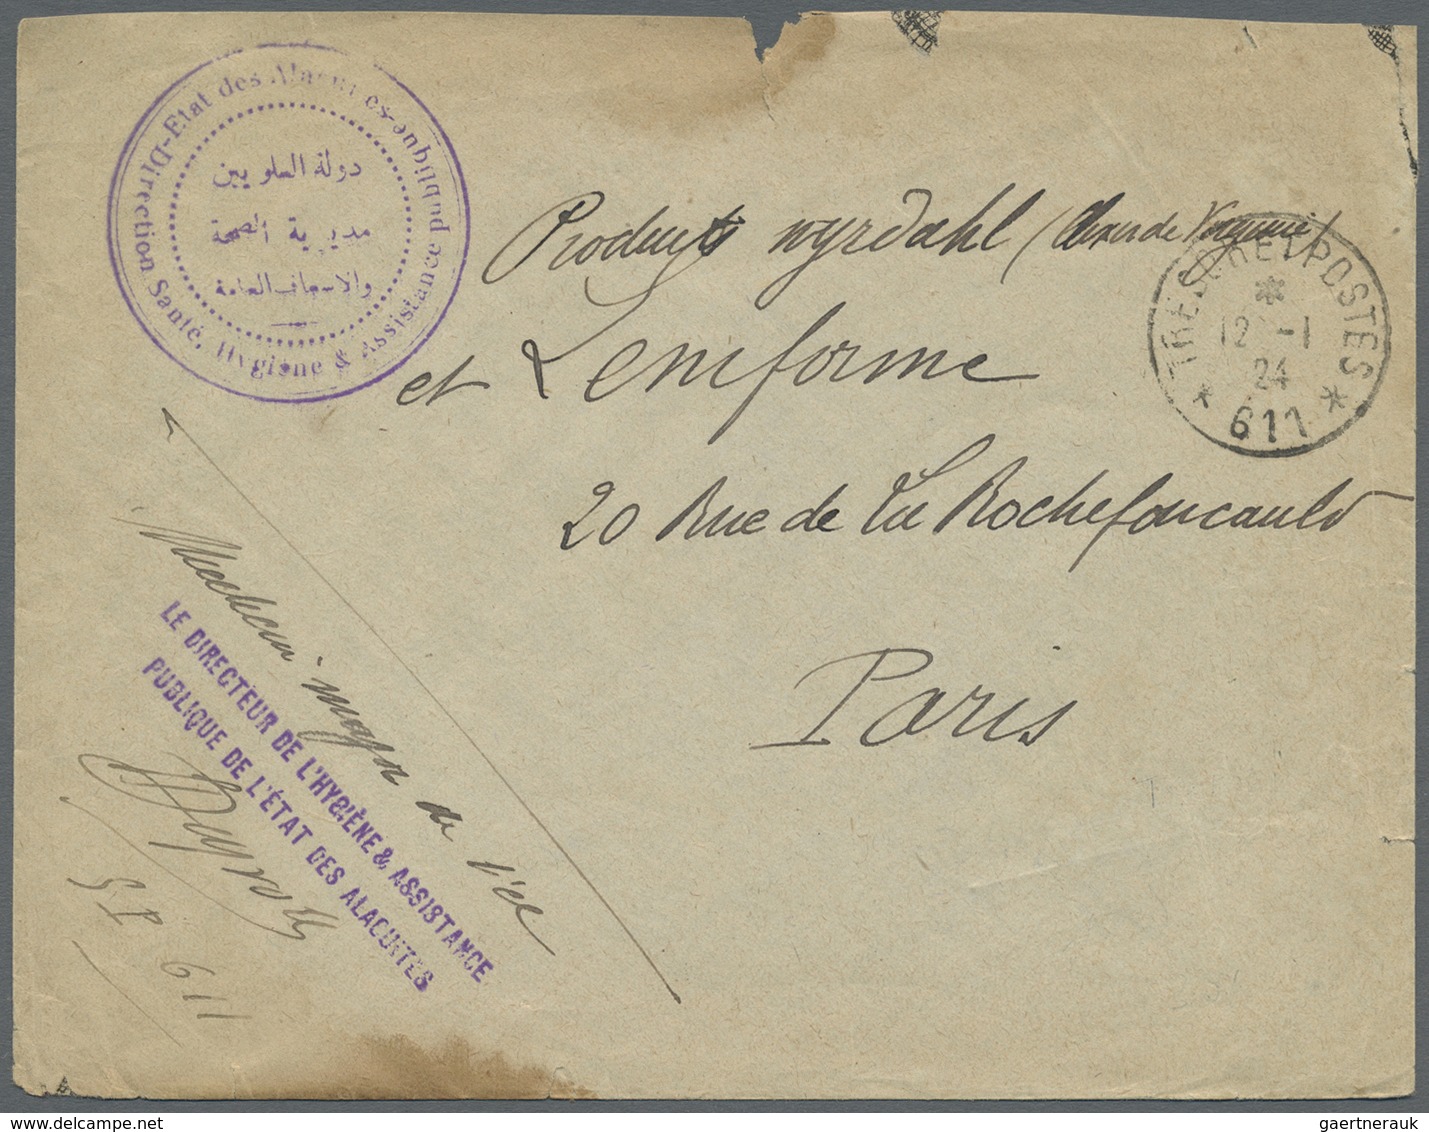 Direction Santé, Hygiène & Assistance publique-Etat des Alaouites-
دولة العلويين
مديرية الصحة
والاسعاف العامة
Produits nyrdahl
et Leniforme
20 Rue de La Rochefoucauld
Paris
TRESOR ET POSTES
12 -1
24
* 611 *
Medecin major de
LE DIRECTEUR DE L'HYGIÈNE & ASSISTANCE
PUBLIQUE DE L'ÉTAT DES ALAOUITES
S.P 611
gaertnerauk
www.delcampe.net